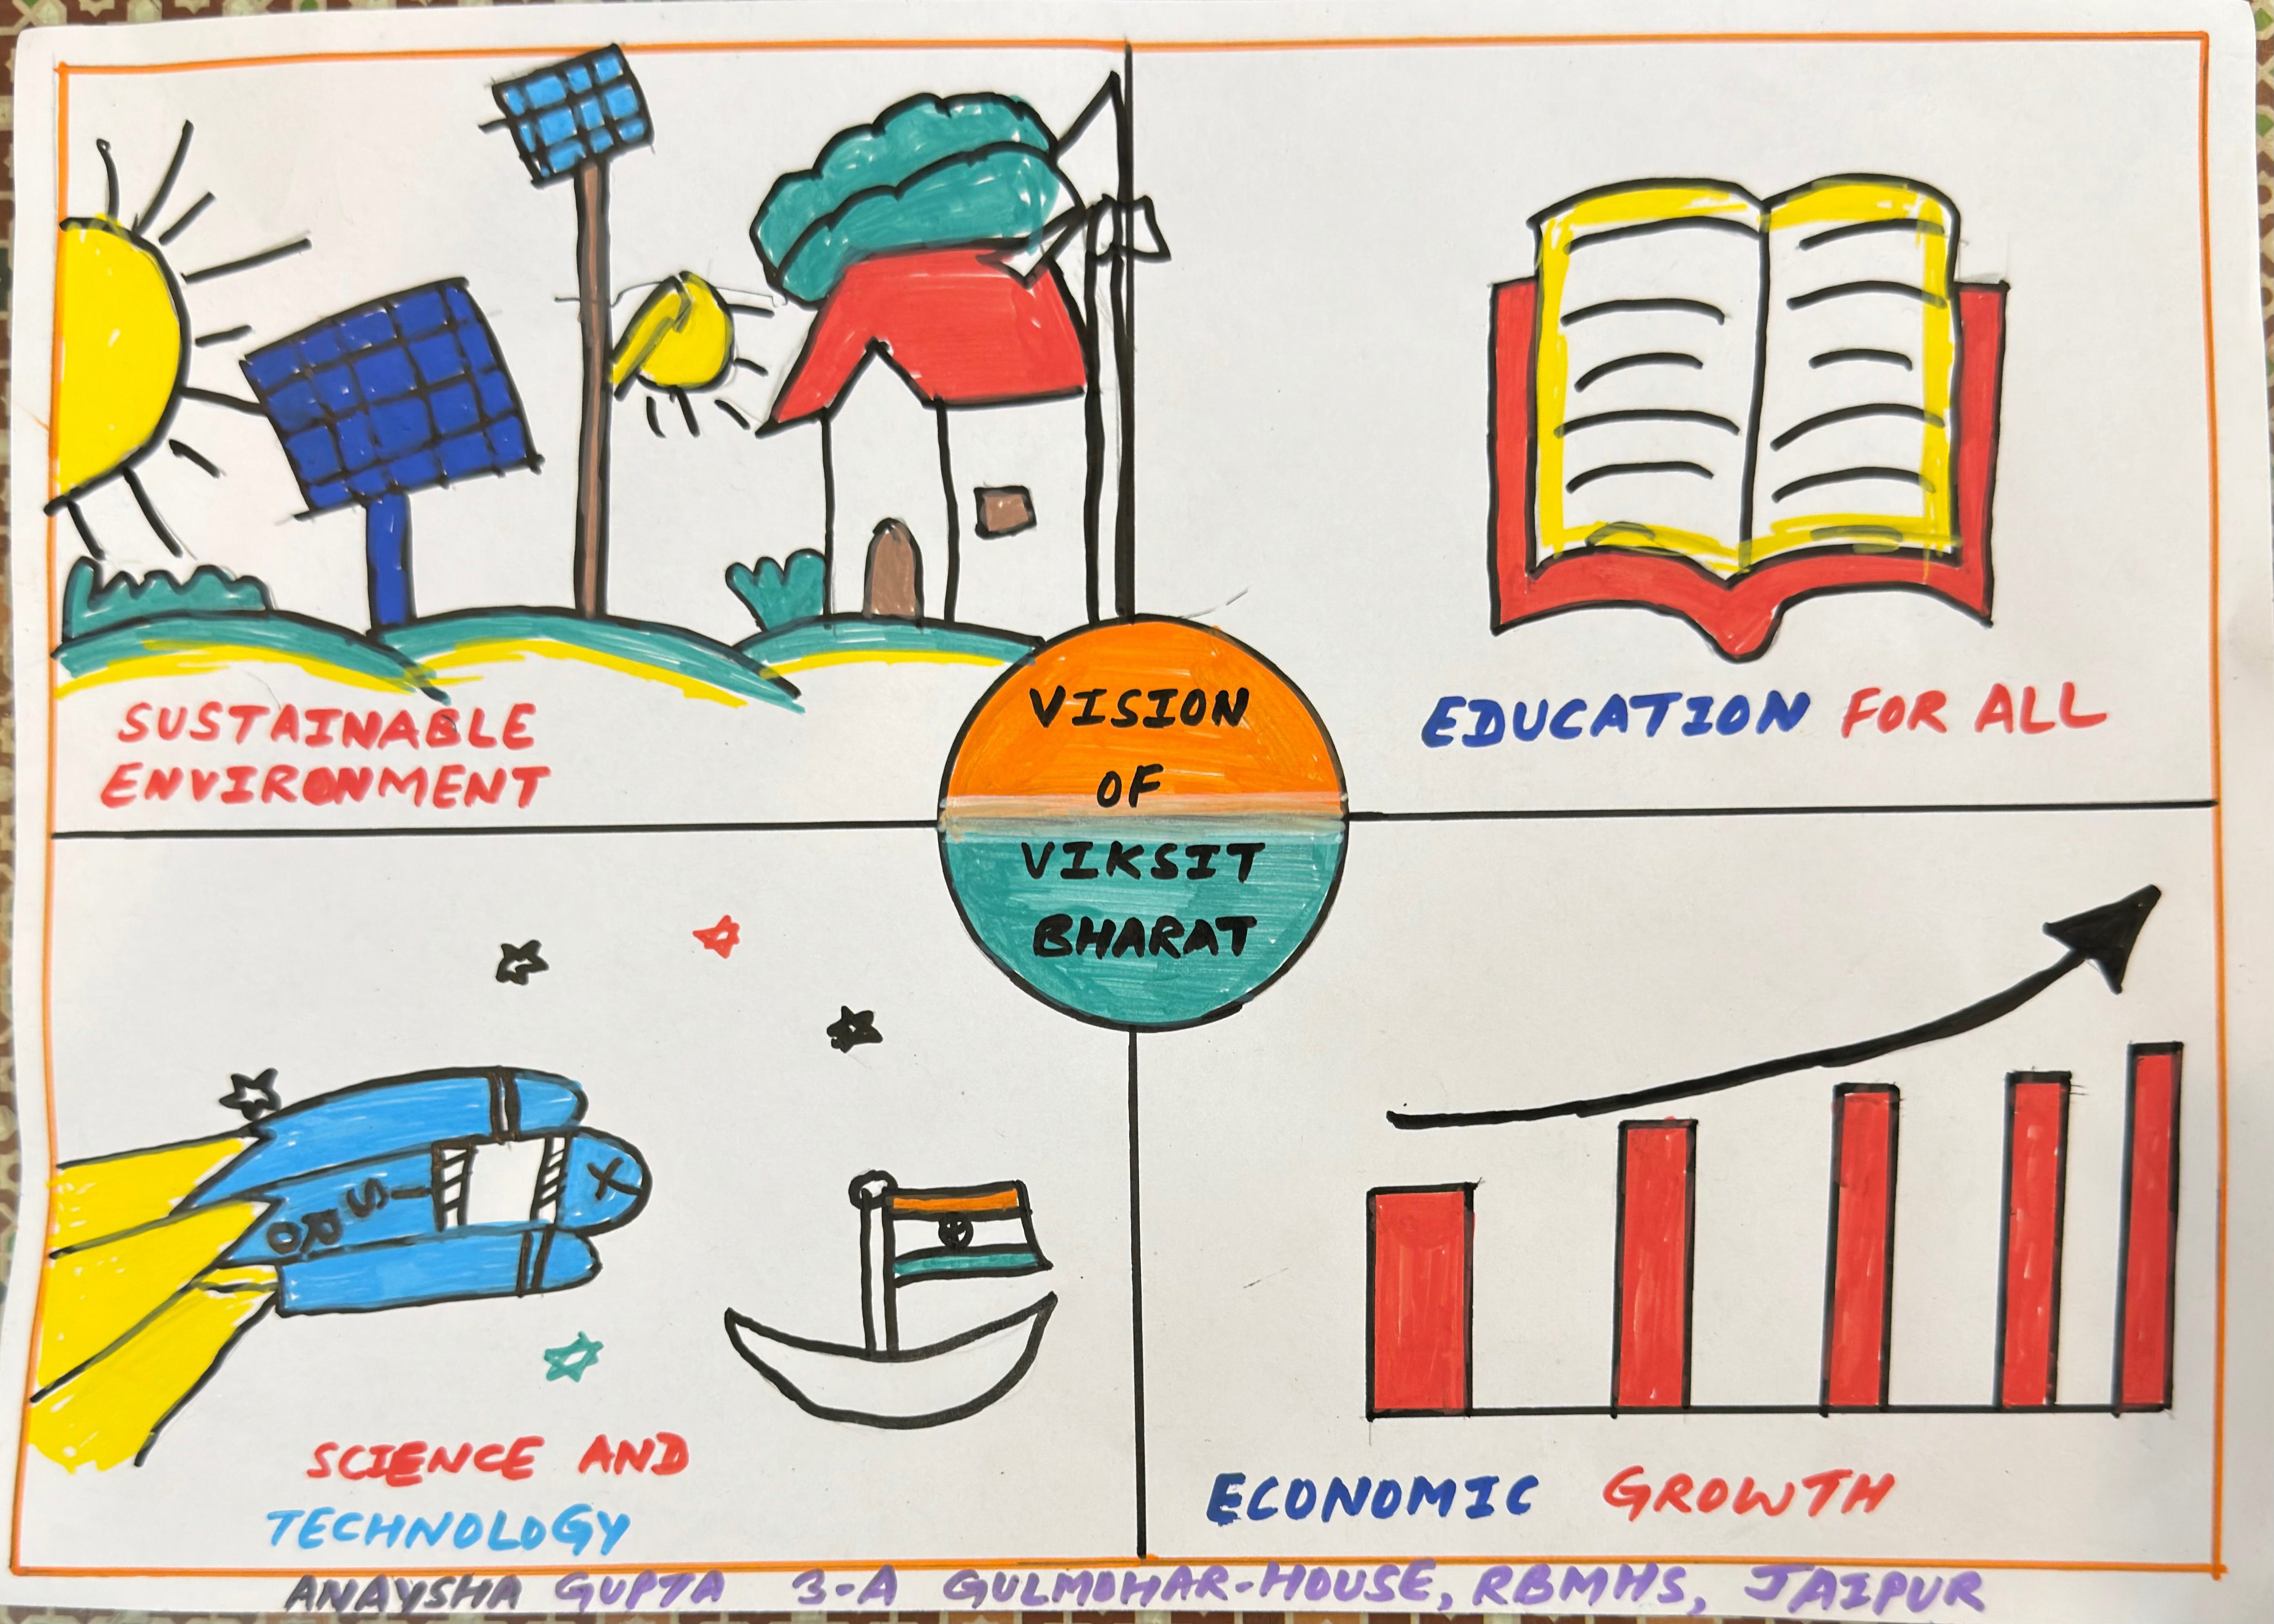 SUSTAINABLE
ENVIRONMENT
EDUCATION FOR ALL
VISION
OF
VIKSIT
BHARAT
ISRO
SCIENCE AND
TECHNOLOGY
ECONOMIC GROWTH
ANAYSHA GUPTA 3-A GULMOHAR-HOUSE, RBMHS, JAIPUR